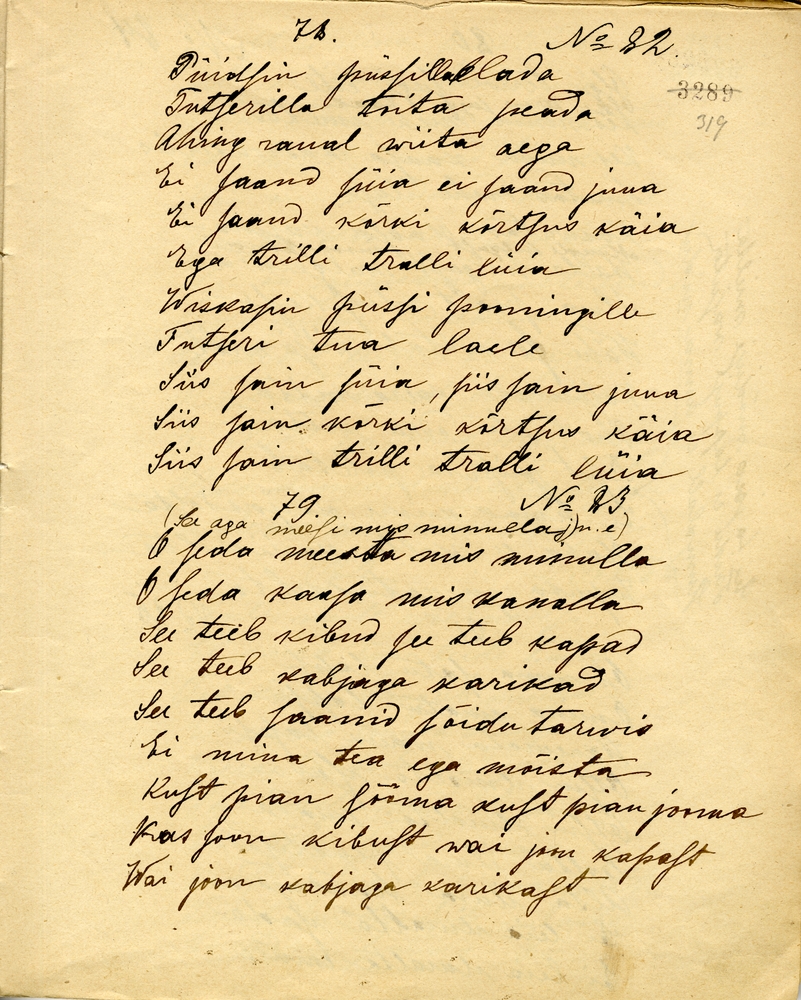 78. № 22.
3289
319
Püidsin püssilla elada
Tutserilla toita peada
Ahing raual wiita aega
Ei saand süia ei saand juua
Ei saand kõrki kõrtsus käia
Ega trilli tralli lüia
Wiskasin püssi peeningille
Tutseri tua laele
Siis sain süia, siis sain juua
Siis sain kõrki kõrtsus käia
Siis sain trilli tralli lüia
79 № 23
(Se aga meesi mis minulla j) n. e)
O seda meesta mis minulla
O seda kaasa mis kanalla
See teeb kibud see teeb kapad
See teeb kabjaga karikad
See teeb saanid sõidu tarwis
Ei mina tea ega mõista
Kust pian sööma kust pian jooma
Kas joon kibust wai joon kapast
Wai joon kabjaga karikast